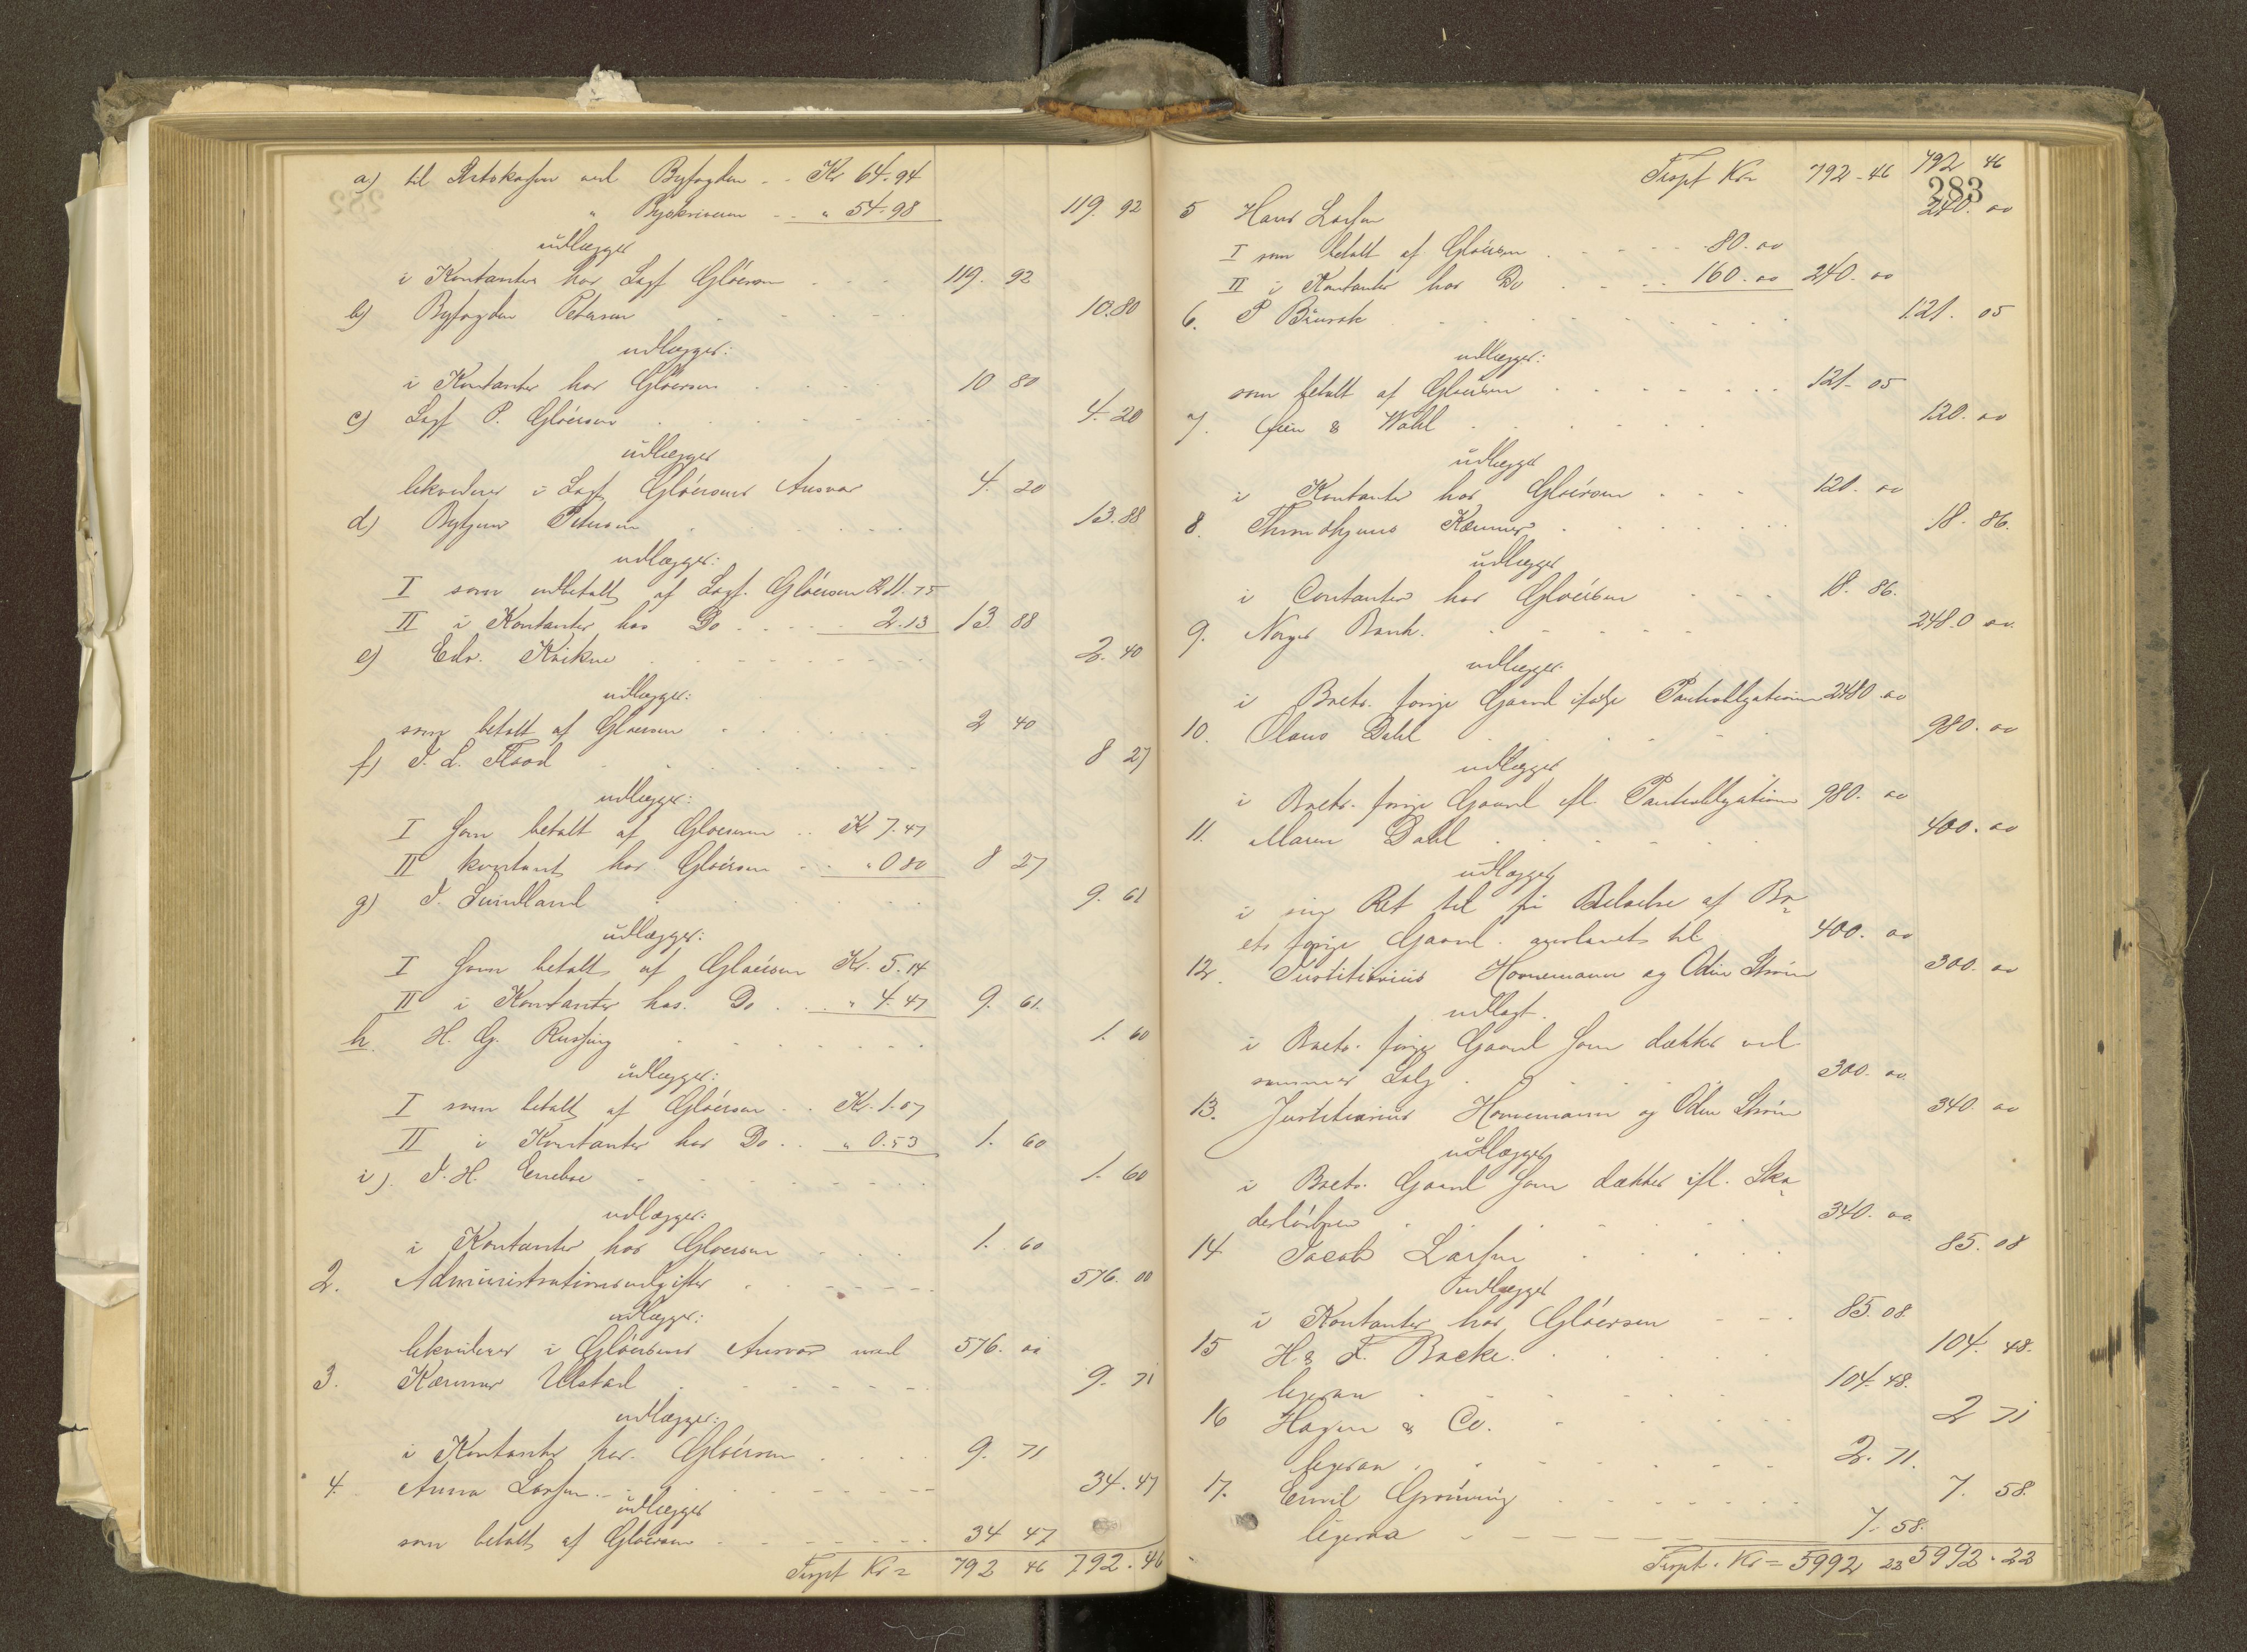 a) til Retskassen ved Byfogden .. Kr 64.94
" Byskriveren .. " 54.98 119. 92
udlægges
i Kontanter hos Sagf Gløersen . . . 119. 92
b) Byfogden Petersen 10.80
udlægges:
i Kontanter hos Gløersen 10 80
c) Sagf P. Gløersen 4. 20
udlægges
likviderer i Sagf. Gløersens Ansvar 4. 20
d) Bytjener Petersen 13.88
udlægges:
I som udbetalt af Sagf. Gløersen Kr 11.75
II i Kontanter hos Do . . . . 2.13 13. 88
e) Edv. Krikne 2. 40
udlægges:
som betalt af Gløersen 2 40
f) I. L. Flood 8 27
udlægges:
I som betalt af Gløersen .. Kr 7.47
II kontant hos Gløersen - " 0 80 8 27
g) T. Svindland 9. 61
udlægges:
I som betalt af Gløersen Kr. 5.14
II i Kontanter hos. Do . . " 4.47 9. 61.
h. H. G. 1. 60
udlægges:
I som betalt af Gløersen .. Kr. 1.07
II i Kontanter hos Do .. " 0.53 1. 60
i). I. H. 1. 60
udlægges:
i Kontanter hos Gloersen 1. 60
2. Administrationsudgifter 576. 00
udlægges:
likviderer i Gløersens Ansvar med 576. 00
3. Kæmner Ulstad 9. 71
udlægges:
i Kontanter hos. Gløersen 9. 71
4. Anna Larsen 34.47
udlægges
som betalt af Gløersen 34 47
Trspt Kr = 792 46 792.46
Trspt Kr = 792-46 792 46
283
5 Hans Larsen 240. 00
I som betalt af Gløersen 80. 00
II i Kontanter hos Do . . .. 160. 00 240. 00
6. P 121. 05
udlægges:
som betalt af Gløersen 121- 05
7. & Wahl 120. 00
udlægges
i Kontanter hos Gløersen 120. 00
8. Throndhjems Kæmner 18. 86.
udlægges
i Contanter hos Gløersen 18. 86.
9. Norges Bank. 2480 00.
udlægges.
i Boets. forrige Gaard ifølge Pantobligation 2480.00
10. Olaus Dahl 980. 00
udlægges
i Boets. forrige Gaard ifl. Pantobligation 980. 00
11. Maren Dahl 400. 00
udlægges
i sin Ret til fri Beboelse af Bo
ets forrige Gaard. anslaaet til 400. 00
12. Justitiarius Hornemann og Odin Strøm 300. 00
udlagt.
i Boets. forrige Gaard som dækket ved
sammes Salg 300. 00.
13. Justitiarius Hornemann og Odin Strøm 340. 00
udlægges
i Boets. Gaard som dækket ifl. Ska
desløsbrev 340. 00.
14 Jacob Larsen 85. 08
udlægges
i Kontanter hos Gløersen 85. 08.
15 H. & F. Backe. 104. 48.
ligesaa 104. 48.
16 Hagen & Co. 2 71
ligesaa 2. 71.
17. Emil Grønning 7. 58.
ligesaa 7. 58.
Trspt. Kr = 5992 22 5992.22